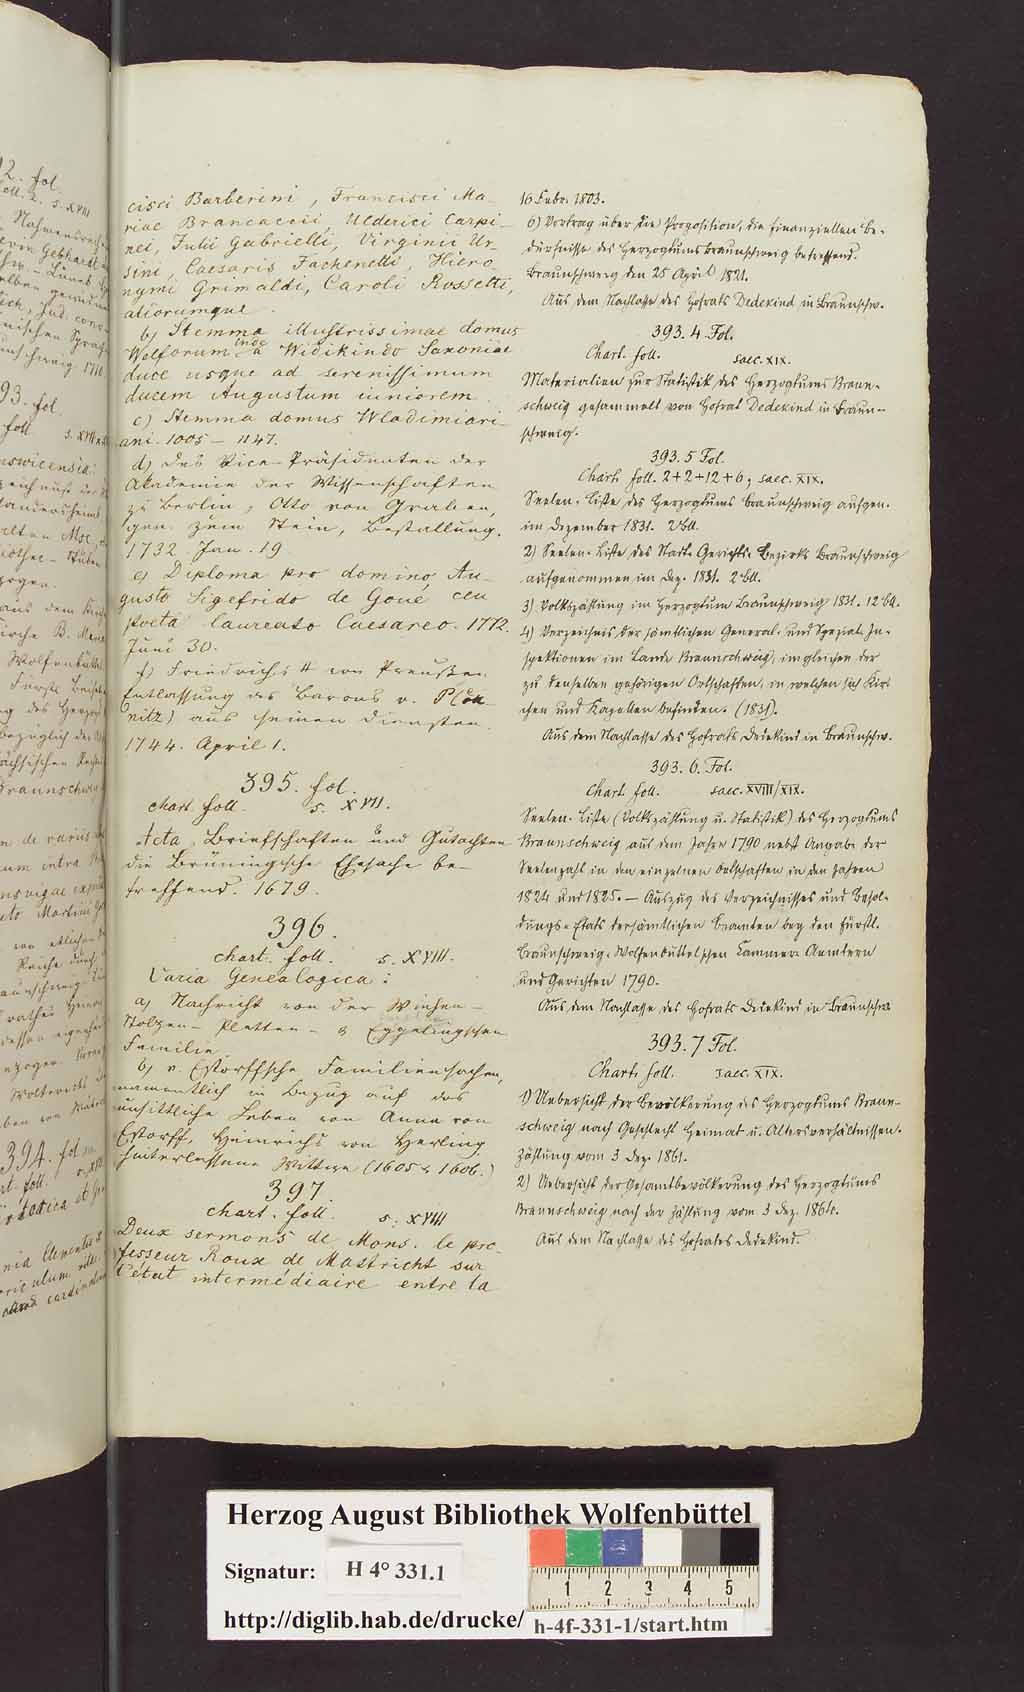 cisci Barberini, Francisci Ma-
riae Brancaccii, Ulderici Carpi-
nei, Julii Gabrielli, Virginii Ur-
sini, Caesaris Fachenetti, Hiero
nymi Grimaldi, Caroli Rossetti,
aliorumque.
b) Stemma illustrissimae domus
Welforum inde a Widikindo Saxoniae
duce usque ad serenissimum
ducem Augustum iuniorem
c) Stemma domus Wladimiari-
ani. 1005 — 1147.
d) Des Vice-Präsidenten der
Akademie der Wissenschaften
zu Berlin, Otto von Graben,
gen. zum Stein, Bestallung.
1732 Jan. 19
e) Diploma pro domino Au-
gusto Sigefrido de Goue ceu
poeta laureato Caesareo. 1772.
Juni 30.
f) Friedrichs II von Preußen
Entlassung des Barons v. Pöll-
nitz) aus seinen Diensten
1744. April 1.
395. fol.
chart. foll. s. XVII.
Acta, Briefschaften und Gutachten
die Brüningsche Ehesache be-
treffend. 1679.
396.
chart. foll. s. XVIII.
Varia Genealogica:
a) Nachricht von der Wiehen-
Stolzen- Pletten- & Eggelingschen
Familie
b) v. Estorffsche Familiensachen,
namentlich in Bezug auf das
unsittliche Leben von Anna von
Estorff, Heinrichs von Herling
hinterlassene Wittwe (1605 & 1606.)
397
chart. foll. s. XVIII
Deux sermons de Mons. le pro-
fesseur Roux de Mastricht sur
l'état intermédiaire entre la
16 Febr. 1803.
6) Vortrag über die Proposition, die finanziellen Be-
dürfnisse des Herzogtums Braunschweig betreffend.
Braunschweig den 25 April 1821.
Aus dem Nachlasse des Hofrats Dedekind in Braunschw.
393. 4 Fol.
Chart. foll. saec. XIX.
Materialien zur Statistik des Herzogtums Braun-
schweig gesammelt von Hofrat Dedekind in Braun-
schweig.
393. 5 Fol.
Chart. foll. 2+2+12+6; saec. XIX.
Seelen-Liste des Herzogtums Braunschweig aufgen.
im Dezember 1831. 2 Bll.
2) Seelen-Liste des Stadt-Gerichts-Bezirks Braunschweig
aufgenommen im Dez. 1831. 2 Bll.
3) Volkszählung im Herzogtum Braunschweig 1831. 12 Bll.
4) Verzeichnis der sämtlichen General- und Spezial-In-
spektionen im Lande Braunschweig, imgleichen der
zu denselben gehörigen Ortschaften, in welchen sich Kir-
chen und Kapellen befinden. (1831).
Aus dem Nachlasse des Hofrats Dedekind in Braunschw.
393. 6. Fol.
Chart. foll. saec. XVIII/XIX.
Seelen-Liste (Volkszählung u. Statistik) des Herzogtums
Braunschweig aus dem Jahre 1790 nebst Angabe der
Seelenzahl in den einzelnen Ortschaften in den Jahren
1824 und 1825. — Auszug des Verzeichnisses und Besol-
dungs-Etats der sämtlichen Beamten bey den Fürstl.
Braunschweig-Wolfenbüttelschen Kammer-Aemtern
und Gerichten 1790.
Aus dem Nachlasse des Hofrats Dedekind in Braunschw.
393. 7 Fol.
Chart. foll. saec. XIX.
1) Uebersicht der Bevölkerung des Herzogtums Braun-
schweig nach Geschlecht Heimat u. Altersverhältnissen.
Zählung vom 3 Dez. 1861.
2) Uebersicht der Gesamtbevölkerung des Herzogtums
Braunschweig nach der Zählung vom 3 Dez. 1864.
Aus dem Nachlasse des Hofrates Dedekind.
Herzog August Bibliothek Wolfenbüttel
Signatur: H 4° 331.1
http://diglib.hab.de/drucke/ h-4f-331-1/start.htm
1 2 3 4 5